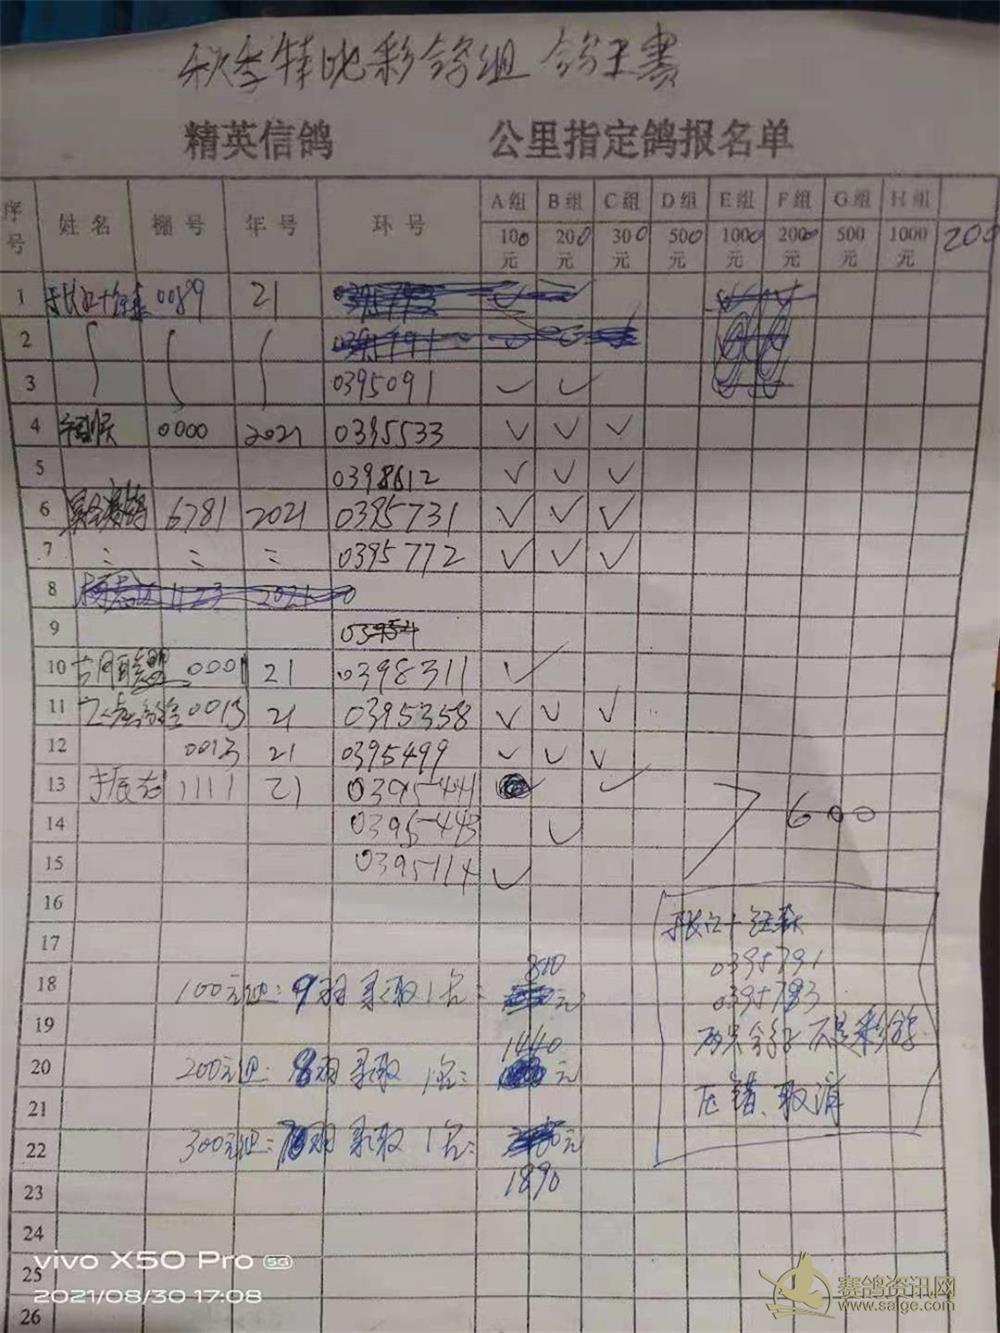 秋季特比彩鸽组 鸽王赛
精英信鸽 公里指定鸽报名单
序号 姓名 棚号 年号 环号 A组 B组 C组 D组 E组 F组 G组 H组
100元 200元 300元 500元 1000元 2000元 500元 1000元 200
1 0089 21
2
3 0395091 ✓ ✓
4 0000 2021 0395533 ✓ ✓ ✓
5 0398612 ✓ ✓ ✓
6 6781 2021 0395731 ✓ ✓ ✓
7 0395772 ✓ ✓ ✓
8 1123 2021
9
10 0001 21 0398311 ✓
11 0013 21 0395358 ✓ ✓ ✓
12 0013 21 0395499 ✓ ✓ ✓
13 1111 21 0395441 ✓ ✓
14 0395443 ✓ 600
15 0395114 ✓
16
17
0395791
18 100元组:9羽录取1名: 810元
0395793
19
两只鸽子不是彩鸽
20 200元组:8羽录取1名: 1440元
压错、取消
21
22 300元组:7羽录取1名: 元
1890
23
24
25
26
vivo X50 Pro 5G
2021/08/30 17:08
赛鸽资讯网
www.saige.com